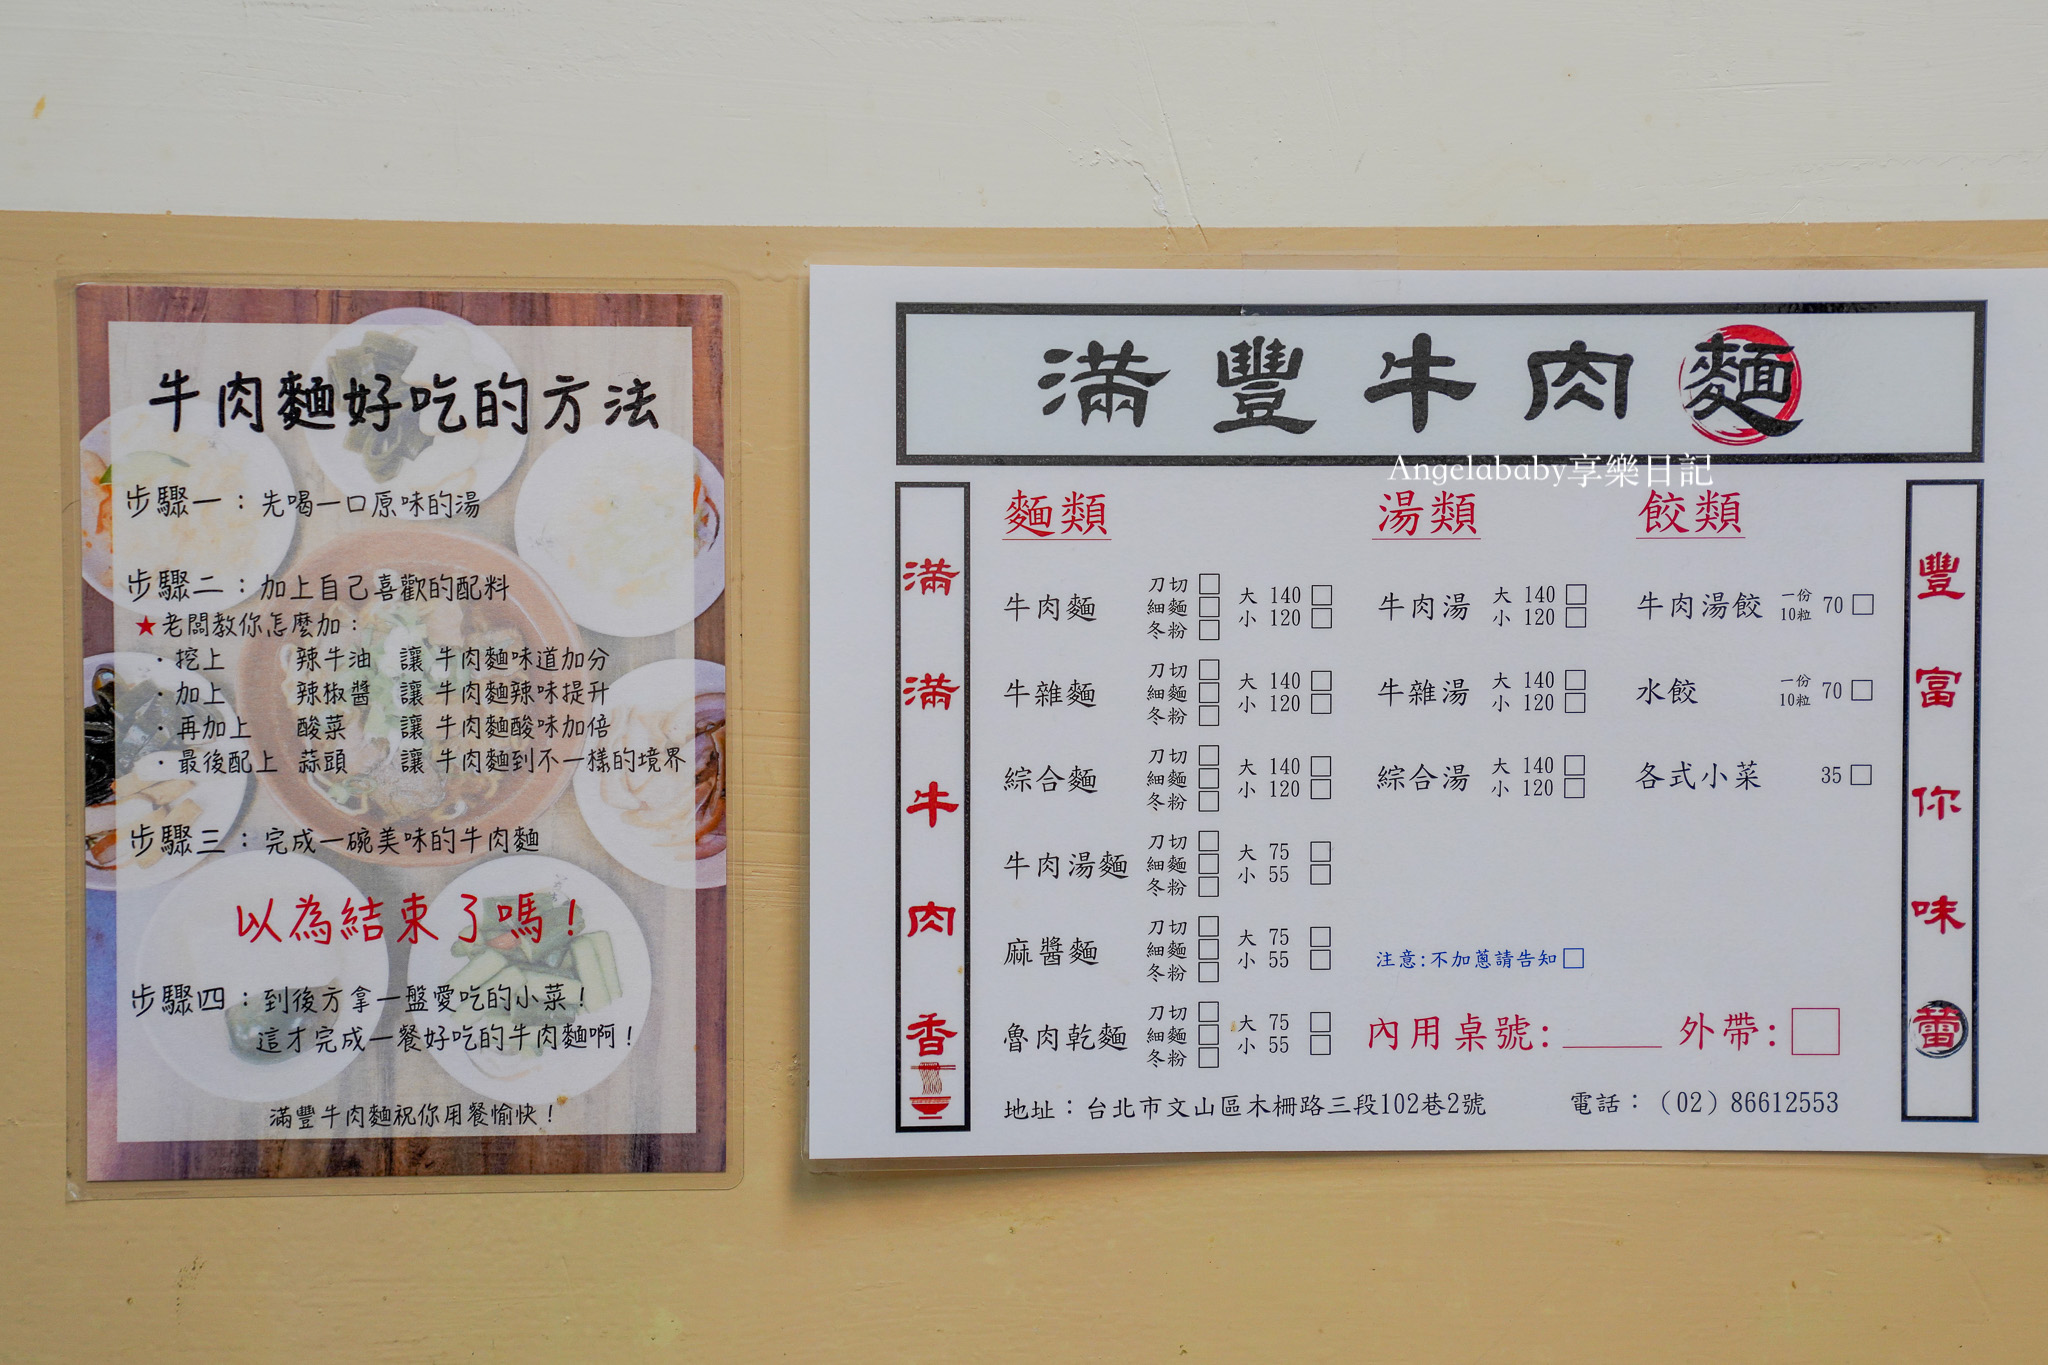 牛肉麵好吃的方法
步驟一：先喝一口原味的湯
步驟二：加上自己喜歡的配料
★老闆教你怎麼加：
．挖上 辣牛油 讓 牛肉麵味道加分
．加上 辣椒醬 讓 牛肉麵辣味提升
．再加上 酸菜 讓 牛肉麵酸味加倍
．最後配上 蒜頭 讓 牛肉麵到不一樣的境界
步驟三：完成一碗美味的牛肉麵
以為結束了嗎！
步驟四：到後方拿一盤愛吃的小菜！
這才完成一餐好吃的牛肉麵啊！
滿豐牛肉麵祝你用餐愉快！
滿豐牛肉麵
Angelababy享樂日記
滿滿牛肉香
麵類
牛肉麵 刀切□ 細麵□ 冬粉□ 大 140 □ 小 120 □
牛雜麵 刀切□ 細麵□ 冬粉□ 大 140 □ 小 120 □
綜合麵 刀切□ 細麵□ 冬粉□ 大 140 □ 小 120 □
牛肉湯麵 刀切□ 細麵□ 冬粉□ 大 75 □ 小 55 □
麻醬麵 刀切□ 細麵□ 冬粉□ 大 75 □ 小 55 □
魯肉乾麵 刀切□ 細麵□ 冬粉□ 大 75 □ 小 55 □
湯類
牛肉湯 大 140 □ 小 120 □
牛雜湯 大 140 □ 小 120 □
綜合湯 大 140 □ 小 120 □
餃類
牛肉湯餃 一份10粒 70 □
水餃 一份10粒 70 □
各式小菜 35 □
注意:不加蔥請告知□
內用桌號:_____ 外帶:□
地址：台北市文山區木柵路三段102巷2號 電話：（02）86612553
豐富你味蕾